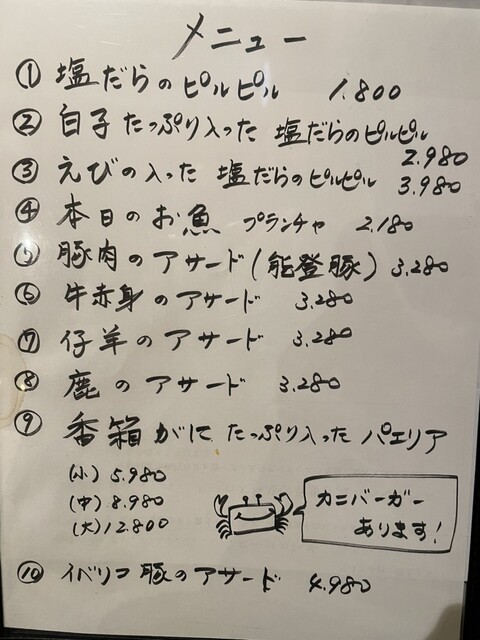 メニュー
① 塩だらのピルピル 1.800
② 白子たっぷり入った 塩だらのピルピル
2.980
③ えびの入った 塩だらのピルピル 3.980
④ 本日のお魚 プランチャ 2.180
⑤ 豚肉のアサード(能登豚) 3.280
⑥ 牛赤身のアサード 3.280
⑦ 仔羊のアサード 3.280
⑧ 鹿のアサード 3.280
⑨ 香箱がにたっぷり入ったパエリア
(小) 5.980
(中) 8.980
(大) 12.800
カニバーガー
あります!
⑩ イベリコ豚のアサード 4.980